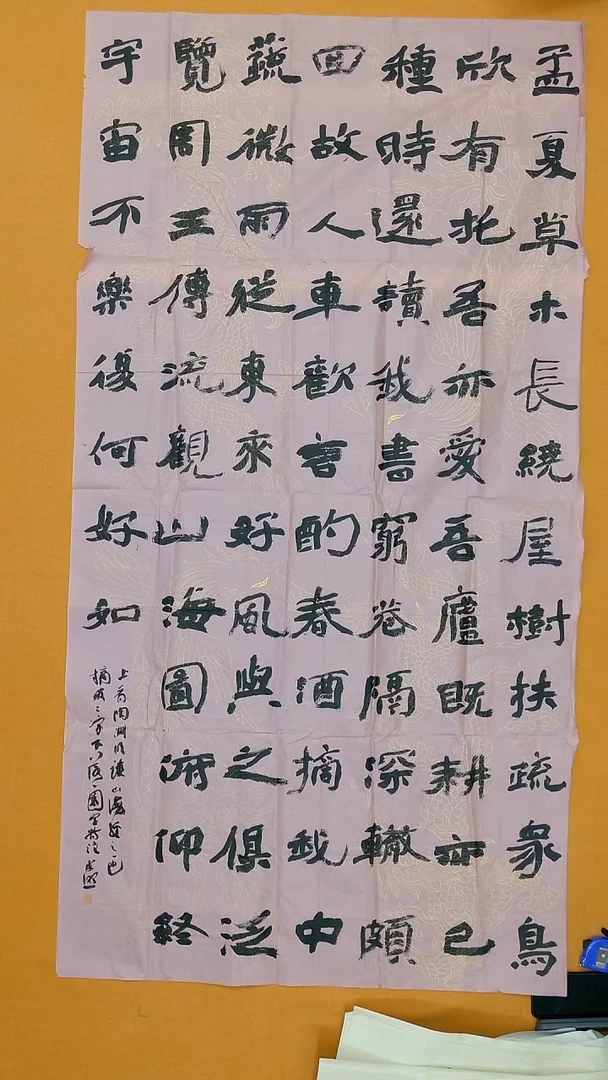 孟夏草木長繞屋樹扶疏衆鳥
欣有托吾亦愛吾廬既耕亦已
種時還讀我書窮巷隔深轍頗
回故人車歡言酌春酒摘我中
蔬微雨從東來好風與之俱泛
覽周王傳流觀山海圖俯仰終
宇宙不樂復何好如
上首陶淵明讀山海經之一也